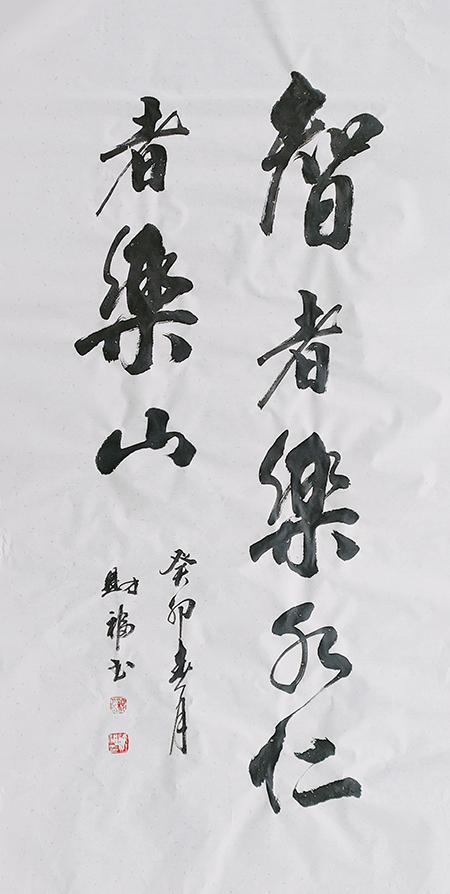 智者樂水仁
者樂山
癸卯春月
財福书